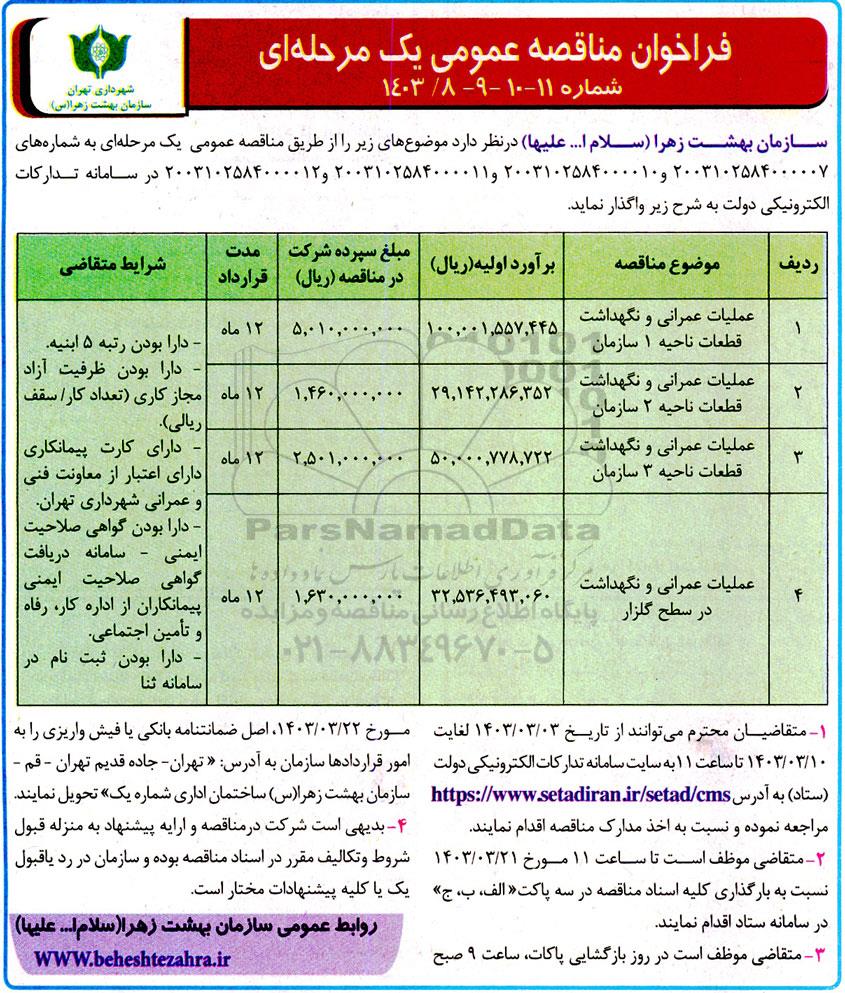 شهرداری تهران
سازمان بهشت زهرا(س)
فراخوان مناقصه عمومی یک مرحله‌ای
شماره ۱۱-۱۰ -۹- ۸/ ۱۴۰۳
سـازمان بهشـت زهرا (سـلام ا... علیها) درنظر دارد موضوع‌های زیر را از طریق مناقصه عمومی یک مرحله‌ای به شماره‌های
۲۰۰۳۱۰۲۵۸۴۰۰۰۰۰۷ و۲۰۰۳۱۰۲۵۸۴۰۰۰۰۱۰ و۲۰۰۳۱۰۲۵۸۴۰۰۰۰۱۱ و۲۰۰۳۱۰۲۵۸۴۰۰۰۰۱۲ در سـامانه تـدارکات
الکترونیکی دولت به شرح زیر واگذار نماید.
ردیف	موضوع مناقصه	برآورد اولیه(ریال)	مبلغ سپرده شرکت در مناقصه (ریال)	مدت قرارداد	شرایط متقاضی
۱	عملیات عمرانی و نگهداشت قطعات ناحیه ۱ سازمان	۱۰۰,۰۰۱,۵۵۷,۴۴۵	۵,۰۱۰,۰۰۰,۰۰۰	۱۲ ماه
۲	عملیات عمرانی و نگهداشت قطعات ناحیه ۲ سازمان	۲۹,۱۴۲,۲۸۶,۳۵۲	۱,۴۶۰,۰۰۰,۰۰۰	۱۲ ماه
۳	عملیات عمرانی و نگهداشت قطعات ناحیه ۳ سازمان	۵۰,۰۰۰,۷۷۸,۷۲۲	۲,۵۰۱,۰۰۰,۰۰۰	۱۲ ماه
۴	عملیات عمرانی و نگهداشت در سطح گلزار	۳۲,۵۳۶,۴۹۳,۰۶۰	۱,۶۳۰,۰۰۰,۰۰۰	۱۲ ماه
- دارا بودن رتبه ۵ ابنیه.
- دارا بودن ظرفیت آزاد
مجاز کاری (تعداد کار/ سقف
ریالی).
- دارای کارت پیمانکاری
دارای اعتبار از معاونت فنی
و عمرانی شهرداری تهران.
- دارا بودن گواهی صلاحیت
ایمنی - سامانه دریافت
گواهی صلاحیت ایمنی
پیمانکاران از اداره کار، رفاه
و تأمین اجتماعی.
- دارا بودن ثبت نام در
سامانه ثنا
ParsNamadData
مرکز فرآوری اطلاعات پارس نماد داده ها
پایگاه اطلاع رسانی مناقصه و مزایده
۰۲۱-۸۸۳۴۹۶۷۰-۵
۱- متقاضیـان محترم می‌توانند از تاریـخ ۱۴۰۳/۰۳/۰۳ لغایت
۱۴۰۳/۰۳/۱۰ تا ساعت ۱۱ به سایت سامانه تدارکات الکترونیکی دولت
(ستاد) به آدرس https://www.setadiran.ir/setad/cms
مراجعه نموده و نسبت به اخذ مدارک مناقصه اقدام نمایند.
۲- متقاضی موظف اسـت تا سـاعت ۱۱ مـورخ ۱۴۰۳/۰۳/۲۱
نسبت به بارگذاری کلیه اسناد مناقصه در سه پاکت« الف، ب، ج»
در سامانه ستاد اقدام نمایند.
۳- متقاضی موظف است در روز بازگشایی پاکات، ساعت ۹ صبح
مـورخ ۱۴۰۳/۰۳/۲۲، اصل ضمانتنامه بانکی یا فیش واریزی را به
امور قراردادها سازمان به آدرس: « تهران- جاده قدیم تهران - قم -
سازمان بهشت زهرا(س) ساختمان اداری شماره یک» تحویل نمایند.
۴- بدیهی است شرکت درمناقصه و ارایه پیشنهاد به منزله قبول
شروط وتکالیف مقرر در اسناد مناقصه بوده و سازمان در رد یاقبول
یک یا کلیه پیشنهادات مختار است.
روابط عمومی سازمان بهشت زهرا(سلام‌ا... علیها)
WWW.beheshtezahra.ir